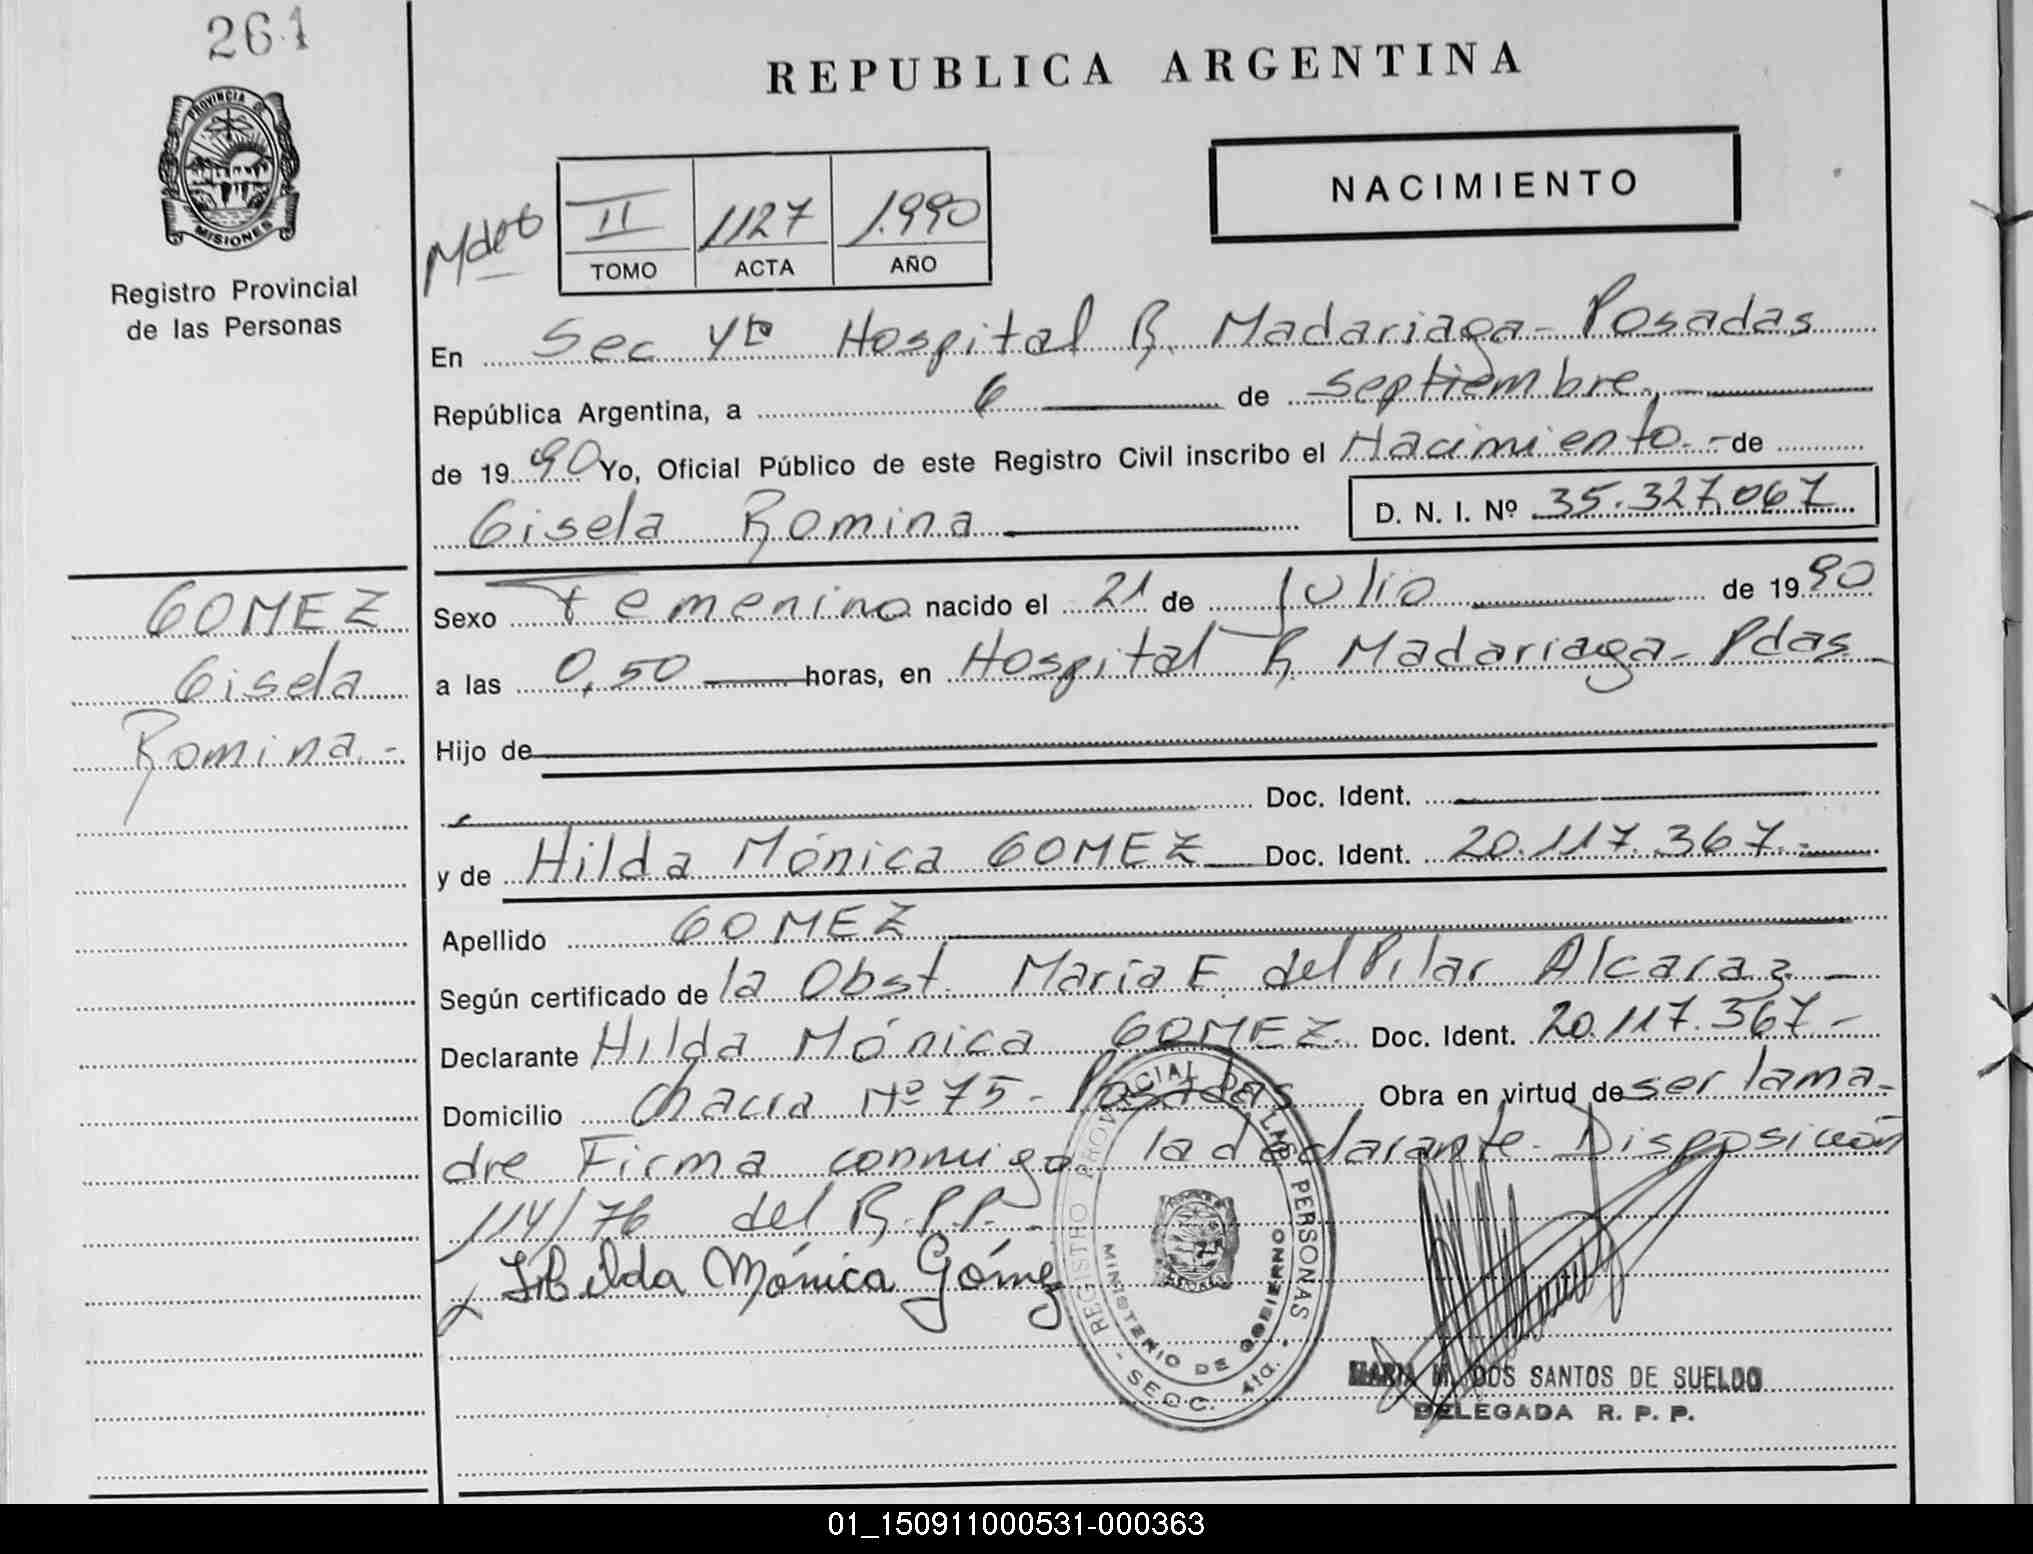 261
REPUBLICA ARGENTINA
PROVINCIA DE MISIONES
Registro Provincial
de las Personas
II 1127 1.990
TOMO ACTA AÑO
NACIMIENTO
En Sec 4ta Hospital R. Madariaga - Posadas
República Argentina, a 6 de septiembre.
de 19 90 Yo, Oficial Público de este Registro Civil inscribo el Nacimiento.- de
Gisela Romina
D. N. I. Nº 35.327.067
GOMEZ
Gisela
Romina.-
Sexo Femenino nacido el 21 de Julio de 19 90
a las 0,50 horas, en Hospital R. Madariaga - Pdas -
Hijo de
Doc. Ident.
y de Hilda Mónica GOMEZ Doc. Ident. 20.117.367.-
Apellido GOMEZ
Según certificado de la Obst. María E. del Pilar Alcaraz -
Declarante Hilda Mónica GOMEZ. Doc. Ident. 20.117.367 -
Domicilio Chacra Nº 75 - Posadas Obra en virtud de ser la ma-
dre Firma conmigo la declarante - Disposición
114/76 del R.P.P. -
x Hilda Mónica Gómez
REGISTRO PROVINCIAL DE LAS PERSONAS
MINISTERIO DE GOBIERNO
- SECC. 4ta. -
MARIA M. DOS SANTOS DE SUELDO
DELEGADA R. P. P.
01_150911000531-000363